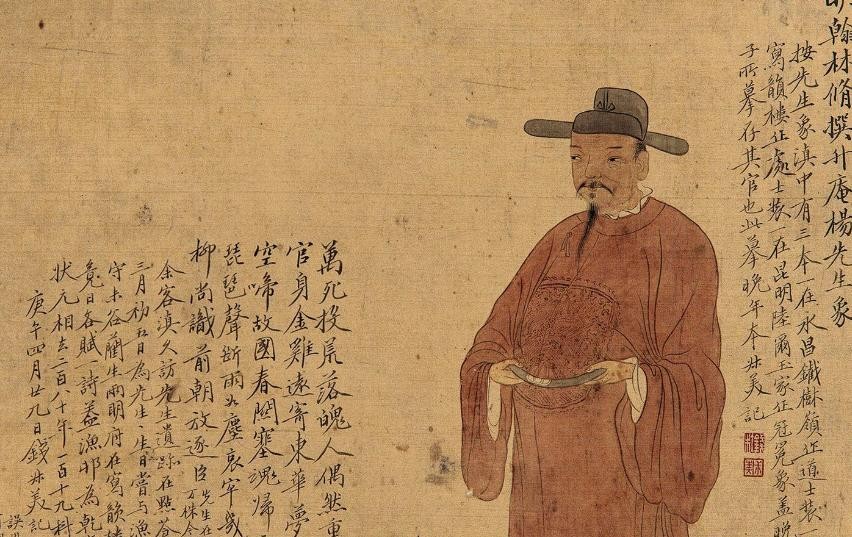 翰林脩撰升庵楊先生象
按先生象滇中有三本一在永昌鐵樹嶺作道士裝一
寫韻樓作處士裝一在昆明陸爾玉家作冠冕象蓋晚
子所摹存其官也此摹晚年本叔美記
萬死投荒落魄人偶然重
官身金雞遠寄東華夢
空啼故國春關塞魂歸
琵琶聲斷雨如塵哀牢幾
柳尚識前朝放逐臣
先生在
万株今
余客滇久訪先生遺跡在點蒼
三月初五日為先生生日嘗与漁
守未谷藺生兩明府在寫韻樓
竟日各賦一詩蓋漁邨為乾
狀元相去二百八十年一百十九科
庚午四月廿九日錢叔美記